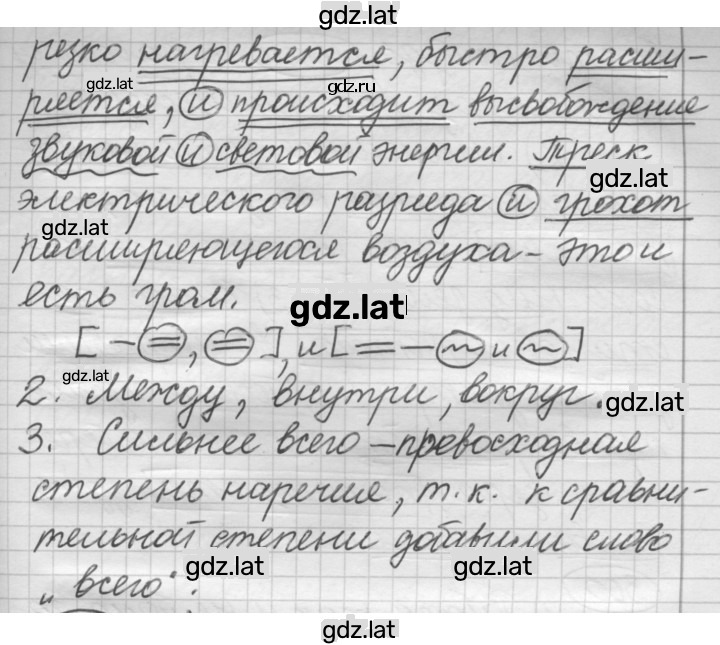 gdz.lat
резко нагревается, быстро расши-
gdz.lat gdz.ru
ряется, и происходит высвобождение
звуковой и световой энергии. Треск
gdz.lat
электрического разряда и грохот
gdz.lat
расширяющегося воздуха - это и
есть гром.
gdz.lat
[ - = , = ], и [ = - ~ и ~ ]
gdz.lat
2. Между, внутри, вокруг.
gdz.lat
3. Сильнее всего - превосходная
степень наречия, т. к. к сравни-
тельной степени добавили слово
gdz.lat gdz.lat
„всего".
gdz.lat